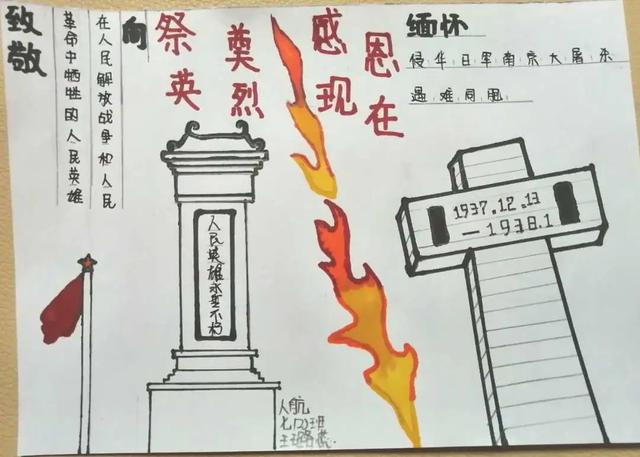 致敬
向
在人民解放战争和人民
革命中牺牲的人民英雄
祭奠
英烈
感恩
现在
缅怀
侵华日军南京大屠杀
遇难同胞
人民英雄永垂不朽
1937.12.13
—1938.1
人航
七(2)班